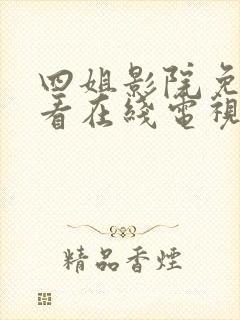 四姐影院免
看在线電視
精品香煙